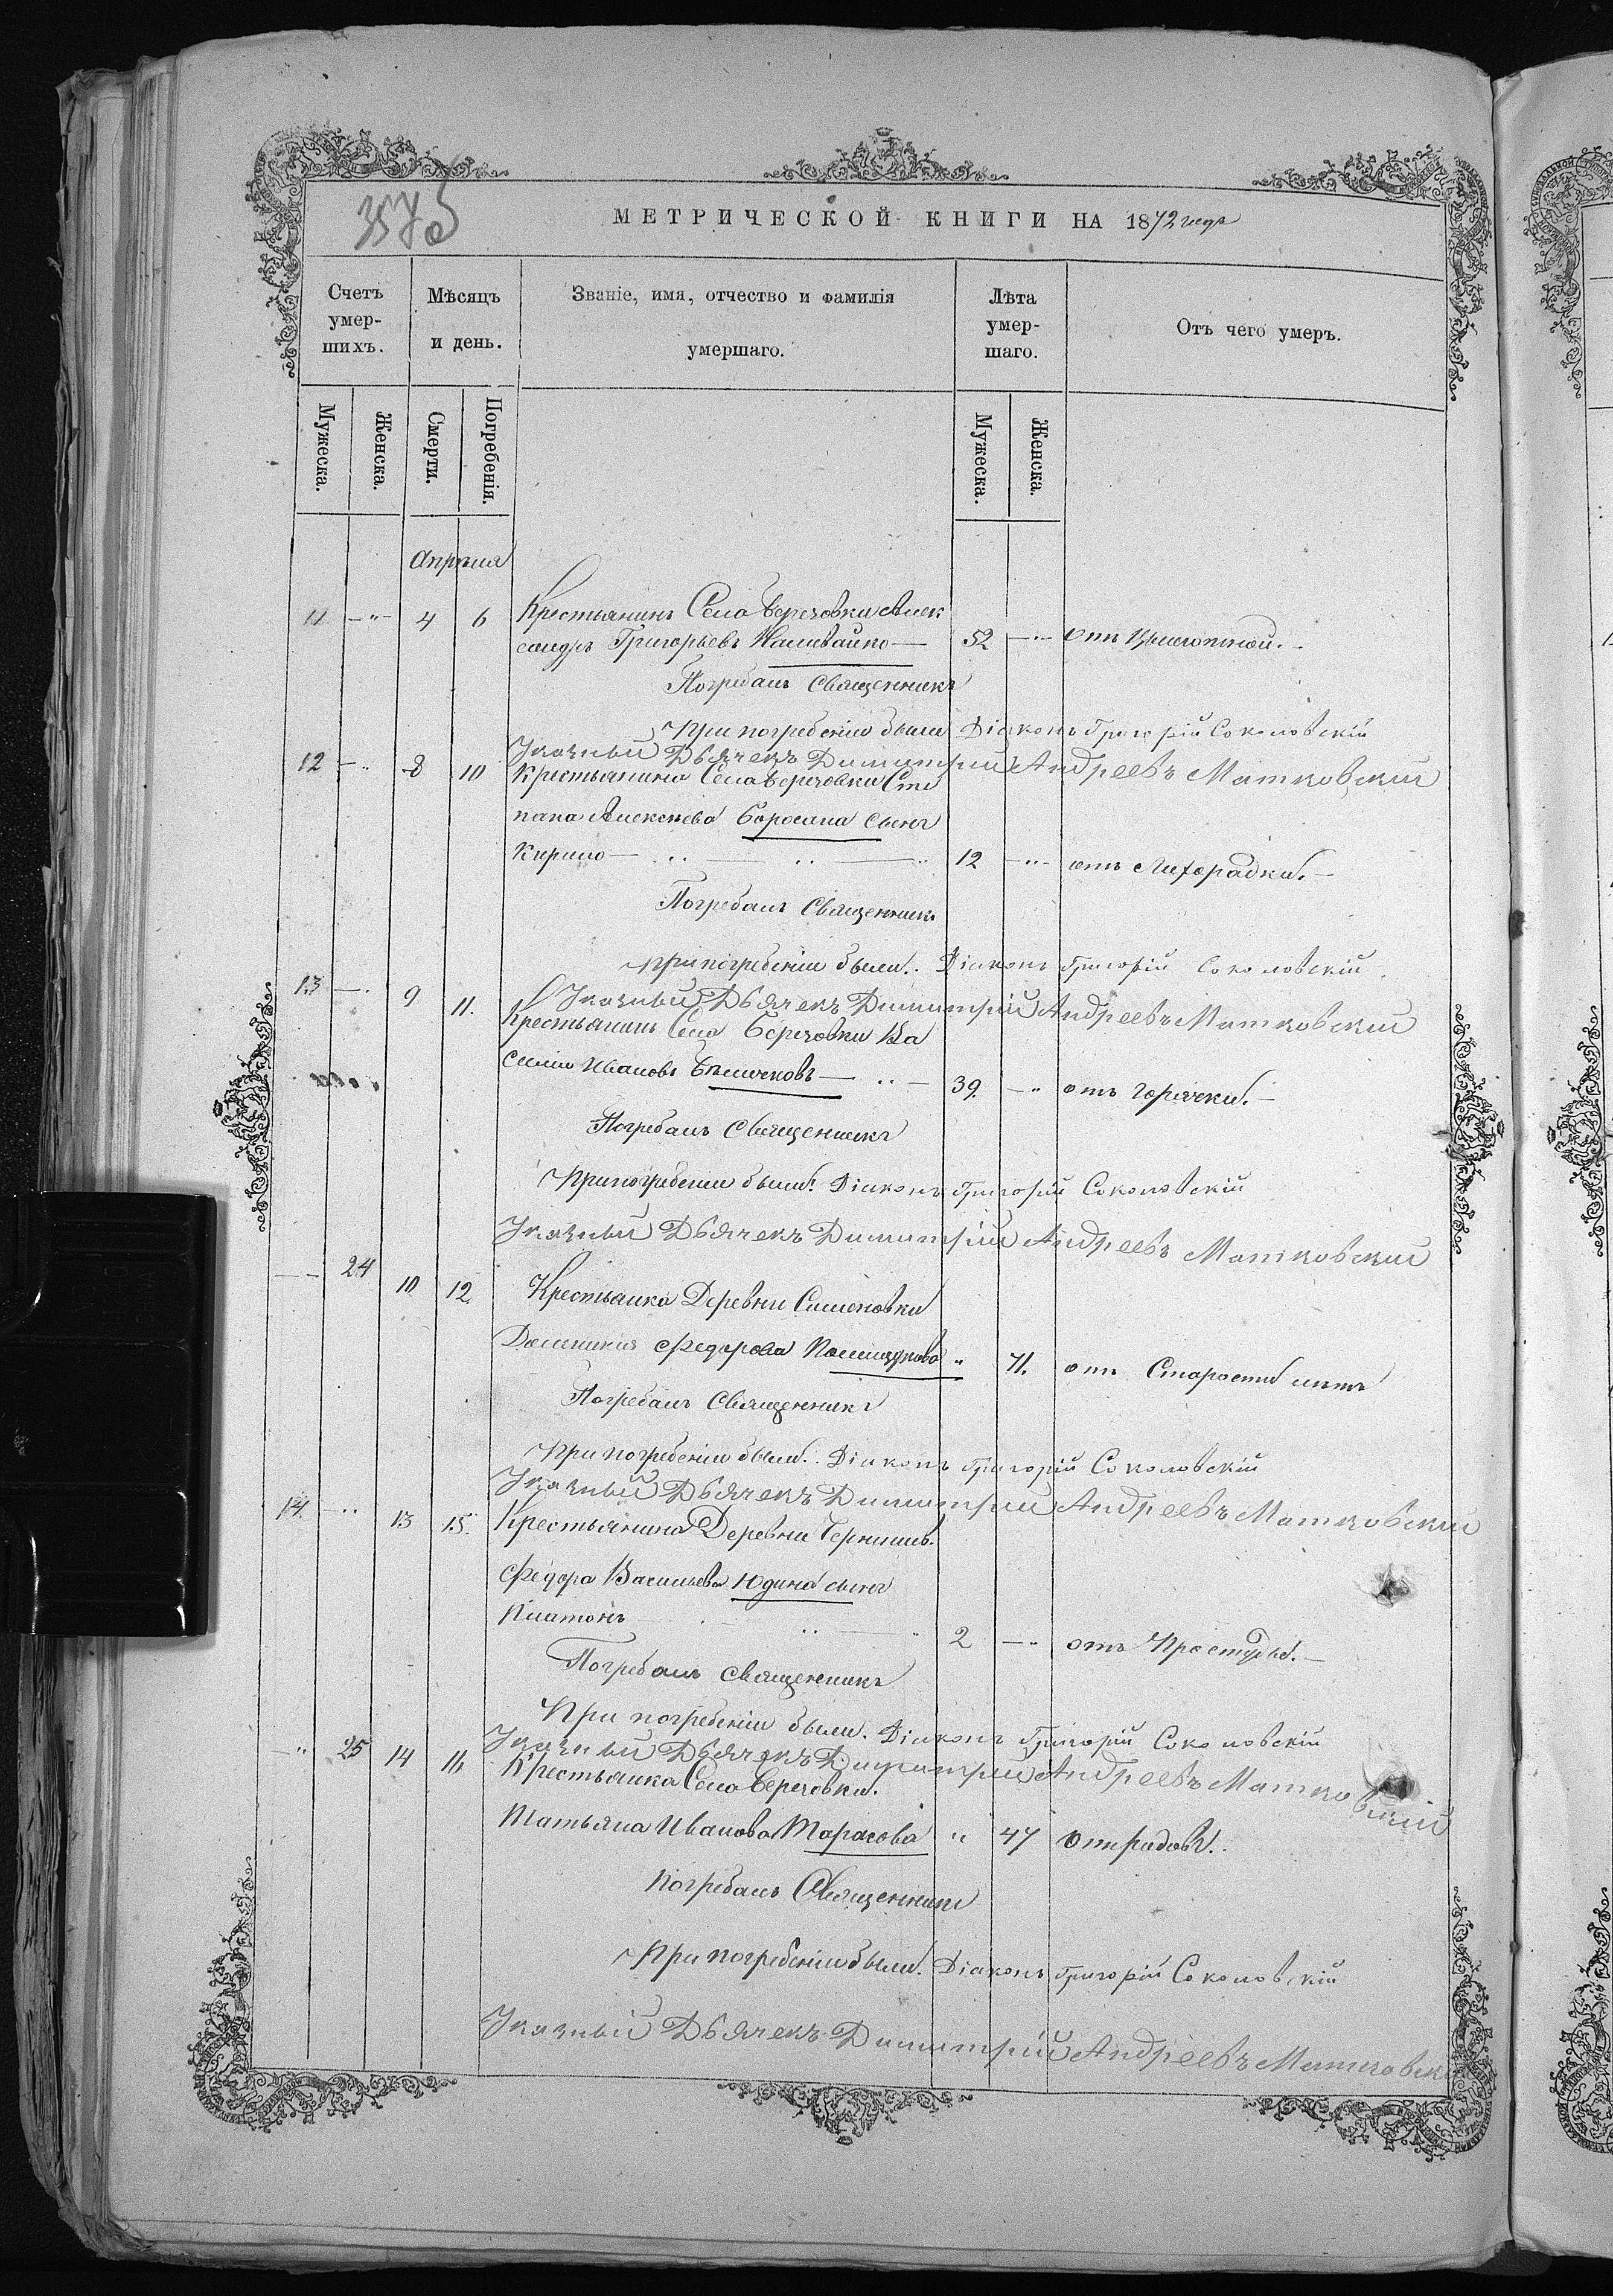 МЕТРИЧЕСКОЙ КНИГИ НА 1872 года
Счетъ умер-шихъ.
Мѣсяцъ и день.
Званіе, имя, отчество и фамилія умершаго.
Лѣта умер-шаго.
Отъ чего умеръ.
Мужеска.
Женска.
Смерти.
Погребенія.
Мужеска.
Женска.
Апрѣля
11 — " — 4 6 Крестьянинъ Села Березовки Алек
сандръ Григорьевъ Наливайко — 52 — " — отъ
Погребалъ Священникъ
При погребеніи были Діаконъ Григорій Соколовскій
Указный Дьячекъ Димитрій Андреевъ Матковскій
12 — " 8 10 Крестьянина Села Березовки Сте
пана Алексѣева сынъ
Кирило — " — " — " 12 — " — отъ Лихорадки. —
Погребалъ Священникъ
При погребеніи были. Діаконъ Григорій Соколовскій
Указный Дьячекъ Димитрій Андреевъ Матковскій
13 — " 9 11. Крестьянинъ Села Березовки Ва
силій Ивановъ — " — 39. — " отъ Горячки. —
Погребалъ Священникъ
При погребеніи были: Діаконъ Григорій Соколовскій
Указный Дьячекъ Димитрій Андреевъ Матковскій
— — 24 10 12. Крестьянка Деревни Симоновки
Домникия Федорова " 71. отъ Старости лѣтъ
Погребалъ Священникъ
При погребеніи были. Діаконъ Григорій Соколовскій
Указный Дьячекъ Димитрій Андреевъ Матковскій
14. — " 13 15. Крестьянина Деревни
Федора Васильева Юдина сынъ
Платонъ — " — " 2 — " отъ Простуды. —
Погребалъ Священникъ
При погребеніи были. Діаконъ Григорій Соколовскій
Указный Дьячекъ Димитрій Андреевъ Матковскій
— " 25 14 16 Крестьянка Села Березовки.
Татьяна Иванова Тарасова " 47 отъ родовъ.
Погребалъ Священникъ
При погребеніи были. Діаконъ Григорій Соколовскій
Указный Дьячекъ Димитрій Андреевъ Матковскій